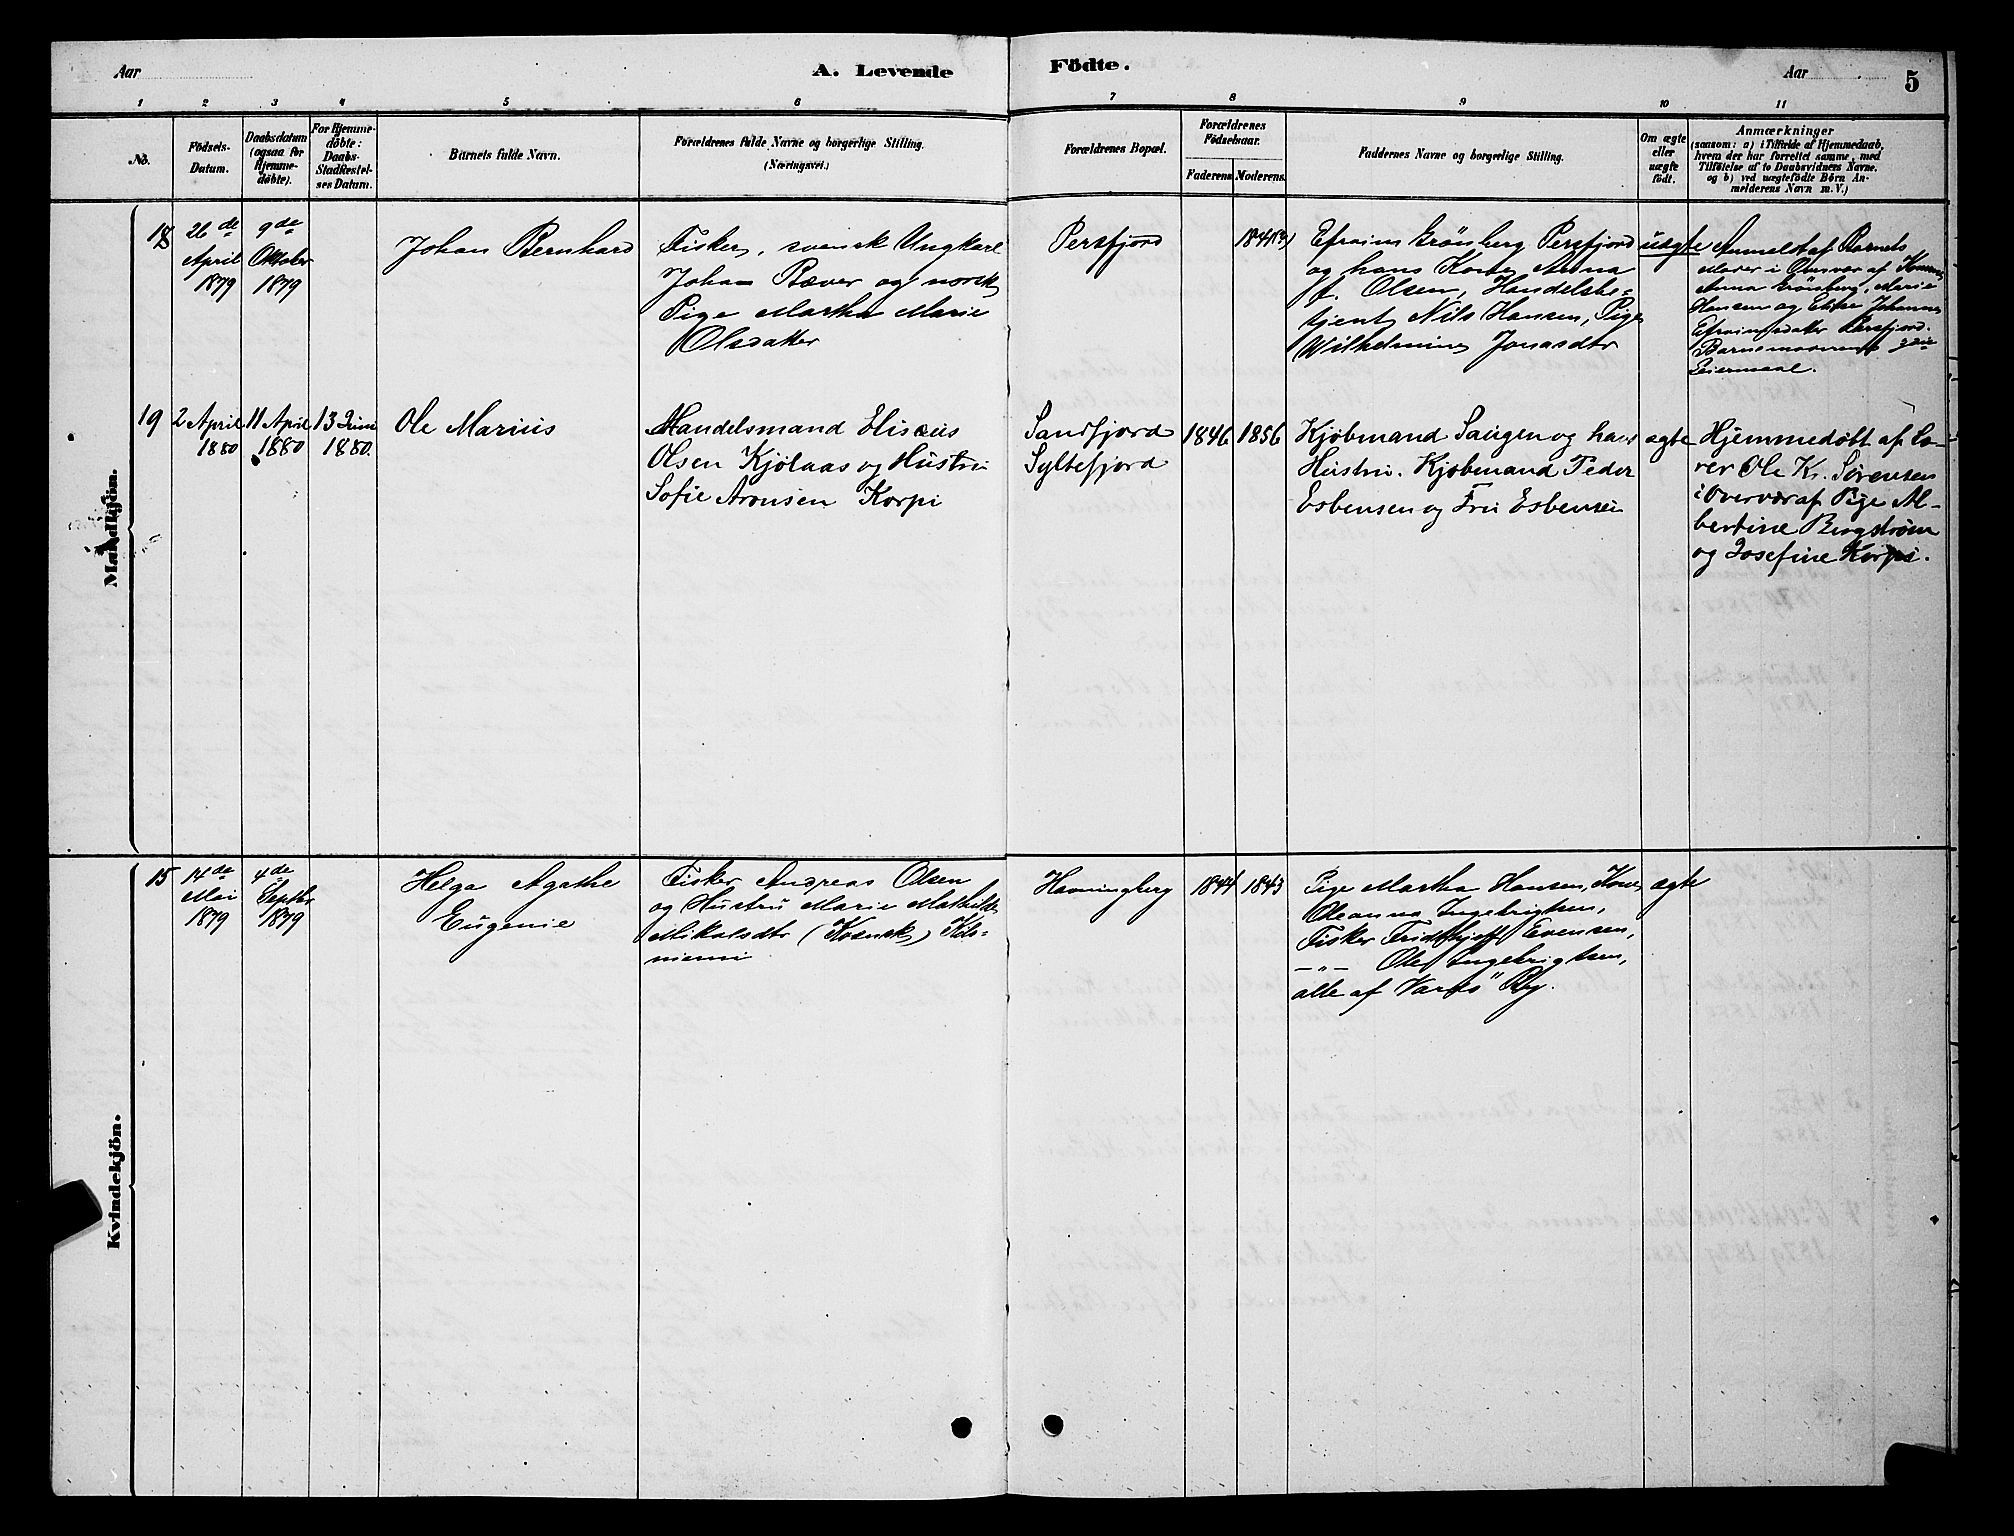 Aar
A. Levende
Födte.
Aar
5
1 2 3 4 5 6 7 8 9 10 11
No.
Födsels-
Datum.
Daabsdatum
(ogsaa for
Hjemme-
döbte).
For Hjemme-
döbte:
Daabs-
Stadfæstel-
ses Datum.
Barnets fulde Navn.
Forældrenes fulde Navne og borgerlige Stilling.
(Næringsvei.)
Forældrenes Bopæl.
Forældrenes
Födselsaar.
Faderens. Moderens.
Faddernes Navne og borgerlige Stilling.
Om ægte
eller
uægte
födt.
Anmærkninger
(saasom: a) i Tilfælde af Hjemmedaab,
hvem der har forrettet samme, med
Tilföielse af to Daabsvidners Navne,
og b) ved uægtefödte Börn An-
melderens Navn m. V.)
Mandkjön.
18
26de
April
1879
9de
Oktober
1879
Johan Bernhard
Fisker, svensk Ungkarl
Johan Bæver og norsk
Pige Martha Marie
Olsdatter
Persfjord
1841
Efraim Grönberg Persfjord
og hans Kone Anna
f. Olsen, Handelsbe-
tjent Nils Hansen, Pige
Wilhelmine Jonasdtr
uægte
Anmeldt af Barnets
Moder i Overvær af
Anna Grönberg, Marie
Hansen og Johanne
Efraimsdatter Persfjord.
Barnemoderens
Leiermaal.
19
2 April
1880
11 April
1880
13 Juni
1880.
Ole Marius
Handelsmand Elisæus
Olsen Kjölaas og Hustru
Sofie Aronsen Korpi
Sandfjord
Syltefjord
1846
1856
Kjöbmand Saugen og hans
Hustru. Kjöbmand Peder
Esbensen og Fru Esbensen
ægte
Hjemmedöbt af Læ-
rer Ole Kr. Sörensen
i Overvær af Pige Al-
bertine Bergström
og Josefine Korpi.
Kvindekjön.
15
14de
Mai
1879
4de
Septbr
1879
Helga Agathe
Eugenie
Fisker Andreas Olsen
og Hustru Marie Mathilde
Mikalsdtr (Kvensk) Kels-
niemi
Havningberg
1844
1843
Pige Martha Hansen, Kone
Oleanna Ingebrigtsen,
Fisker Fridthjoff Evensen,
—"— Ole Ingebrigtsen,
alle af Vardö By.
ægte